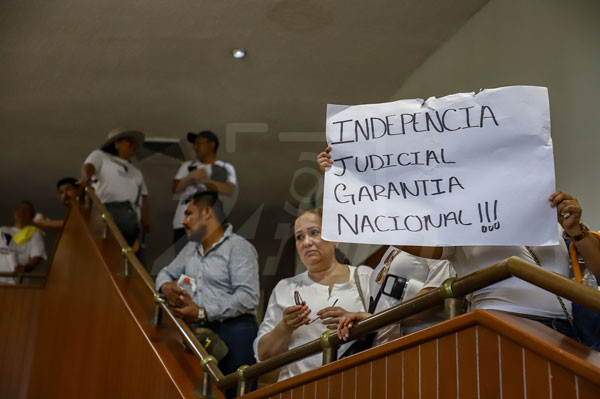 INDEPENCIA
JUDICIAL
GARANTIA
NACIONAL!!!